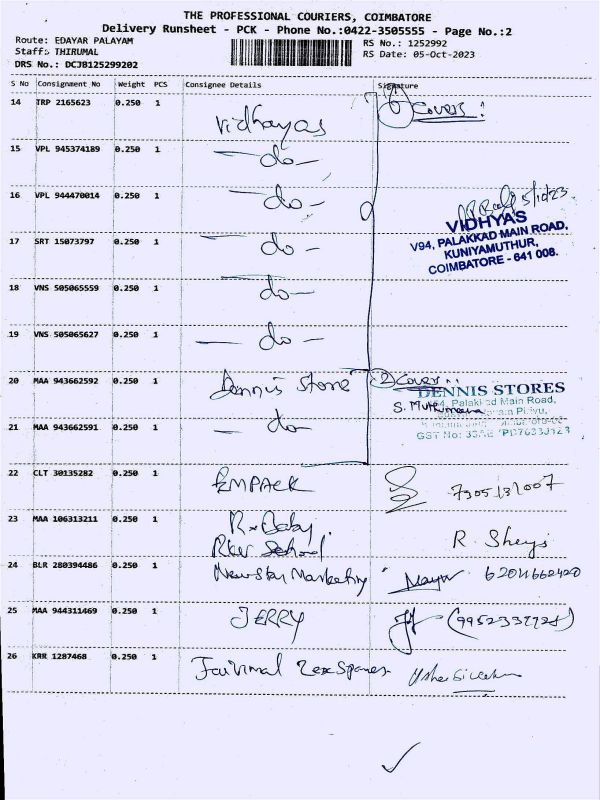 THE PROFESSIONAL COURIERS, COIMBATORE
Delivery Runsheet - PCK - Phone No.:0422-3505555 - Page No.:2
Route: EDAYAR PALAYAM
RS No.: 1252992
Staff: THIRUMAL
RS Date: 05-Oct-2023
DRS No.: DCJB125299202
S No Consignment No Weight PCS Consignee Details Signature
14 TRP 2165623 0.250 1 Vidhayas 6 Covers
15 VPL 945374189 0.250 1 -do-
16 VPL 944470014 0.250 1 -do-
5/10/23
VIDHYAS
V94, PALAKKAD MAIN ROAD,
KUNIYAMUTHUR,
COIMBATORE - 641 008.
17 SRT 15073797 0.250 1 -do-
18 VNS 505065559 0.250 1 -do-
19 VNS 505065627 0.250 1 -do-
20 MAA 943662592 0.250 1 Dennis Store 2 Cover
DENNIS STORES
Palakkad Main Road,
21 MAA 943662591 0.250 1 -do-
GST No:
22 CLT 30135282 0.250 1 EMPACK
23 MAA 106313211 0.250 1 R.
24 BLR 280394486 0.250 1 Newstar Marketing
25 MAA 944311469 0.250 1 JERRY
26 KRR 1287468 0.250 1